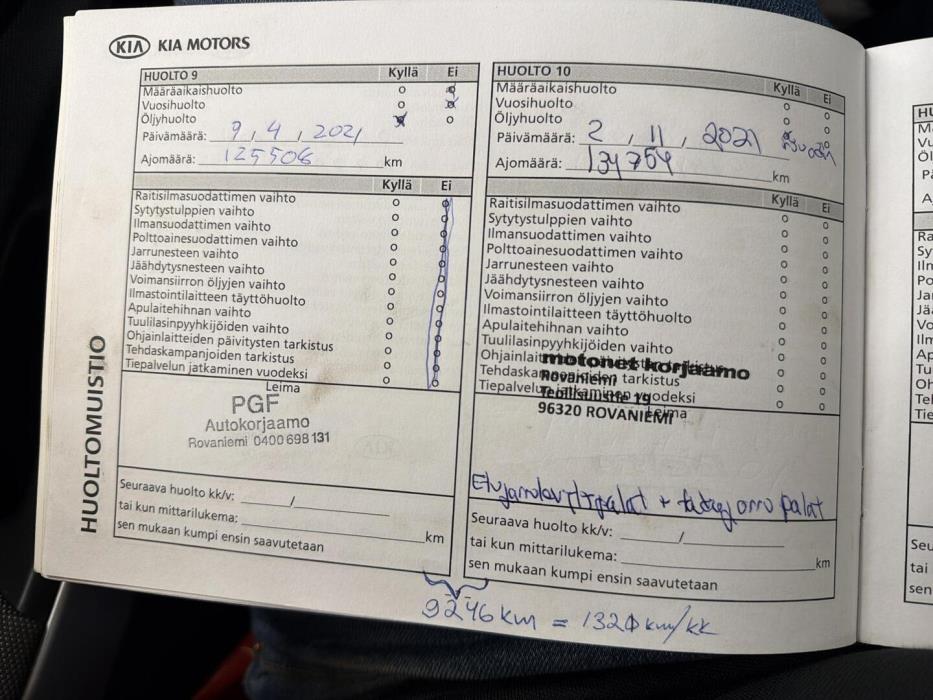 KIA KIA MOTORS
HUOLTOMUISTIO
HUOLTO 9 Kyllä Ei
Määräaikaishuolto
Vuosihuolto
Öljyhuolto
Päivämäärä: 9 , 4 , 2021
Ajomäärä: 125506 km
Kyllä Ei
Raitisilmasuodattimen vaihto
Sytytystulppien vaihto
Ilmansuodattimen vaihto
Polttoainesuodattimen vaihto
Jarrunesteen vaihto
Jäähdytysnesteen vaihto
Voimansiirron öljyjen vaihto
Ilmastointilaitteen täyttöhuolto
Apulaitehihnan vaihto
Tuulilasinpyyhkijöiden vaihto
Ohjainlaitteiden päivitysten tarkistus
Tehdaskampanjoiden tarkistus
Tiepalvelun jatkaminen vuodeksi
Leima
PGF
Autokorjaamo
Rovaniemi 0400 698 131
Seuraava huolto kk/v: /
tai kun mittarilukema: km
sen mukaan kumpi ensin saavutetaan
HUOLTO 10 Kyllä Ei
Määräaikaishuolto
Vuosihuolto
Öljyhuolto
Päivämäärä: 2 , 11 , 2021
Ajomäärä: 134754 km
Kyllä Ei
Raitisilmasuodattimen vaihto
Sytytystulppien vaihto
Ilmansuodattimen vaihto
Polttoainesuodattimen vaihto
Jarrunesteen vaihto
Jäähdytysnesteen vaihto
Voimansiirron öljyjen vaihto
Ilmastointilaitteen täyttöhuolto
Apulaitehihnan vaihto
Tuulilasinpyyhkijöiden vaihto
motonet korjaamo
Tehdaskampanjoiden tarkistus
Rovaniemi
Tiepalvelun jatkaminen vuodeksi
Teollisuustie 19
Leima
96320 ROVANIEMI
palat + palat
Seuraava huolto kk/v: /
tai kun mittarilukema: km
sen mukaan kumpi ensin saavutetaan
9246 km = 1320 km/kk